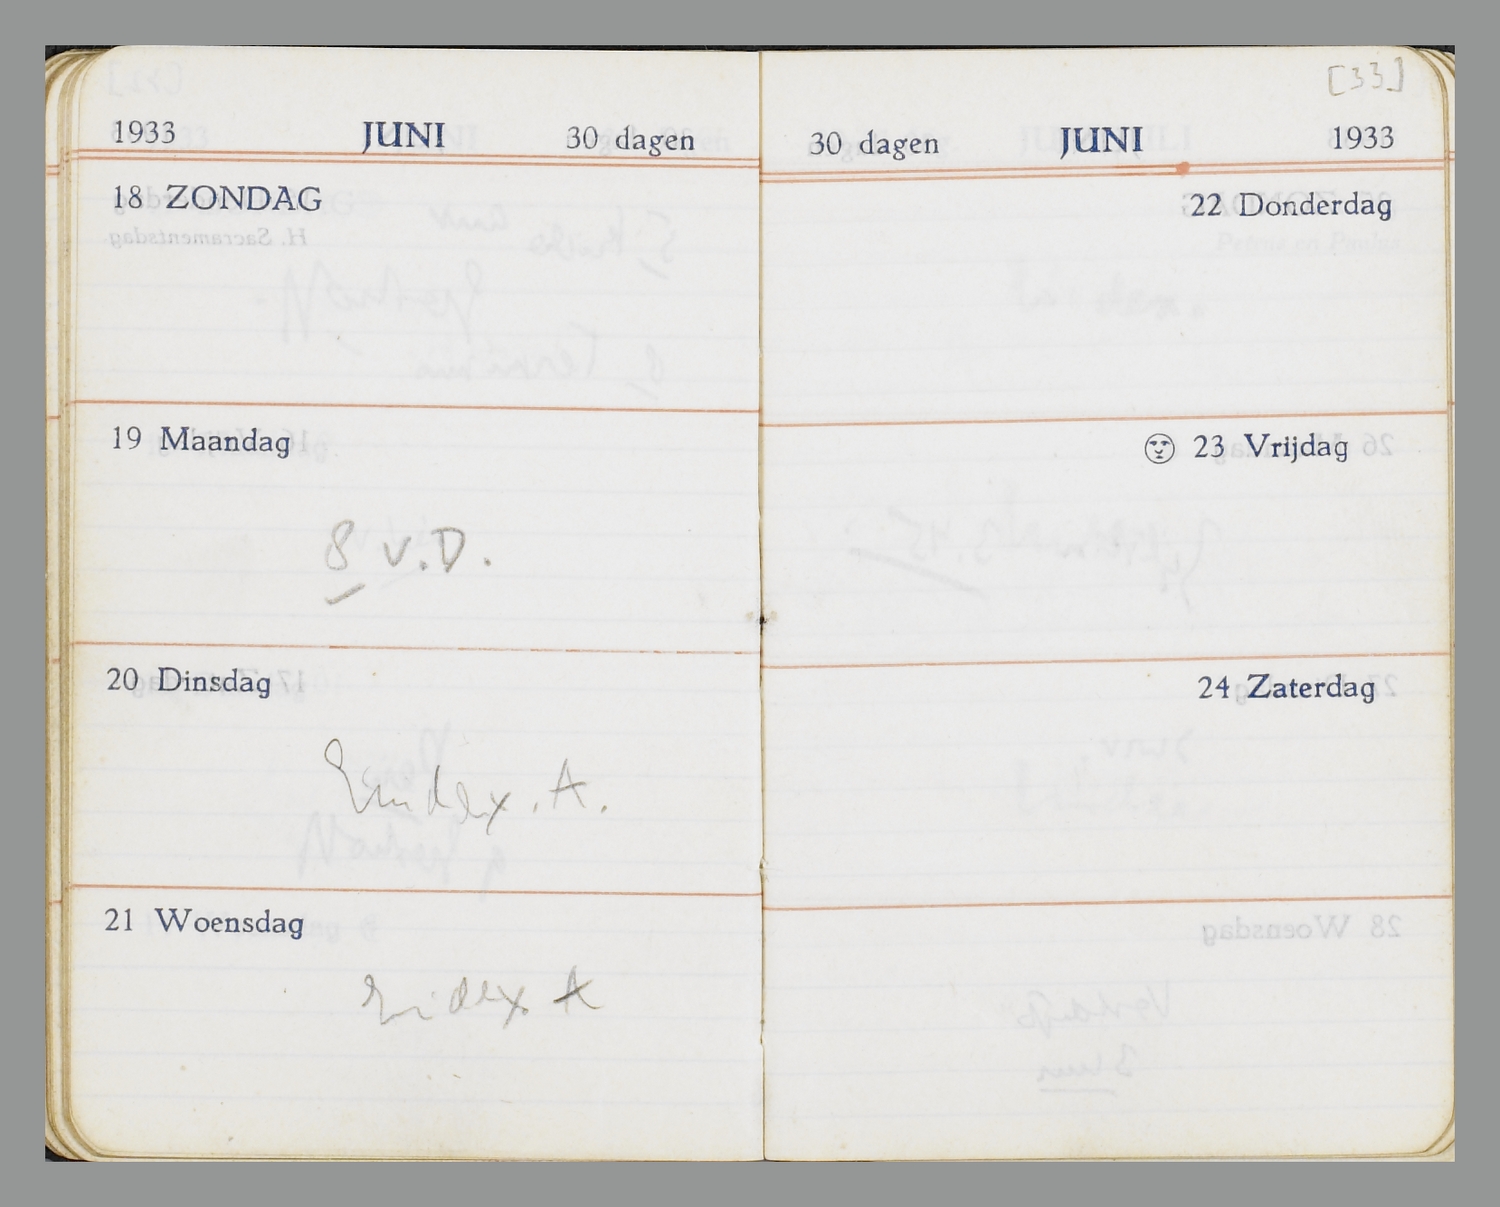 1933 JUNI 30 dagen
18 ZONDAG
19 Maandag
8 v.D.
20 Dinsdag
Eindex. A.
21 Woensdag
Eindex A
[33]
30 dagen JUNI 1933
22 Donderdag
23 Vrijdag
24 Zaterdag